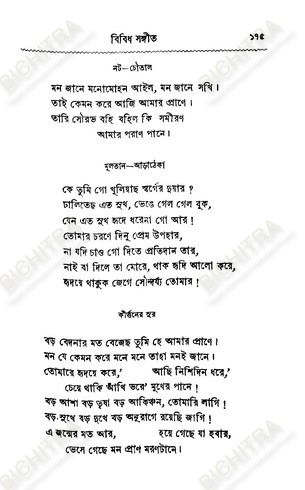 বিবিধ সঙ্গীত ১৭৫
নট—চৌতাল
মন জানে মনোমোহন আইল, মন জানে সখি।
তাই কেমন করে আজি আমার প্রাণে।
তারি সৌরভ বহি বহিল কি সমীরণ
আমার পরাণ পানে।
মূলতান—আড়াঠেকা
কে তুমি গো খুলিয়াছ স্বর্গের দুয়ার?
ঢালিতেছ এত সুখ, ভেঙে গেল গেল বুক,
যেন এত সুখ হৃদে ধরেনা গো আর!
তোমার চরণে দিনু প্রেম উপহার,
না যদি চাও গো দিতে প্রতিদান তার,
নাই বা দিলে তা মোরে, থাক হৃদি আলো করে,
হৃদয়ে থাকুক জেগে সৌন্দর্য্য তোমার!
কীর্ত্তনের সুর
বড় বেদনার মত বেজেছ তুমি হে আমার প্রাণে।
মন যে কেমন করে মনে মনে তাহা মনই জানে।
তোমারে হৃদয়ে করে,’ আছি নিশিদিন ধরে,’
চেয়ে থাকি আঁখি ভরে’ মুখের পানে!
বড় আশা বড় তৃষা বড় আকিঞ্চন, তোমারি লাগি!
বড় সুখে বড় দুখে বড় অনুরাগে রয়েছি জাগি!
এ জন্মের মত আর, হয়ে গেছে যা হবার,
ভেসে গেছে মন প্রাণ মরণটানে।
BICHITRA
BICHITRA
BICHITRA
BICHITRA